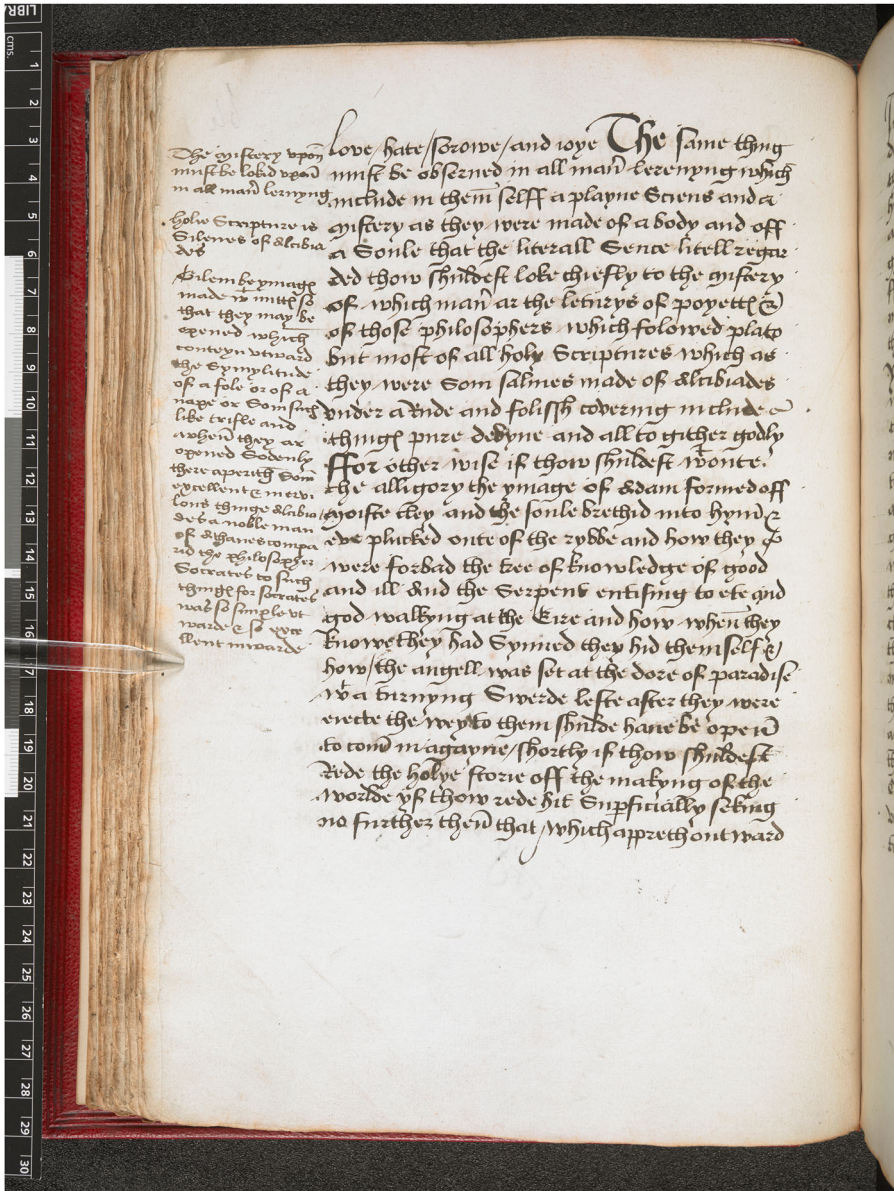 The mistery vpon
must be lokid vpon
in all man̄ lernyng
holie Scripture is
Silenes of Alcibia
des
Silem be ymagꝭ
made wt mittꝭ so
that they may be
opened which
conteyn vtward
the Symylitude
of a fole or of a
nape or Som such
like trifle and
when̄ they ar
opened Sodenly
there aperith Som̄
excellent & mervi
lous thinge Alcibia
des a noble man
of Athanes compa
rid the philosopher
Socrates to such
thingꝭ for Socrates
was so simple vt
warde & so exce
llent inwarde
love / hate / sorowe / and ioye The same thing
must be observed in all man̄ lerenyng which
include in them̄ selff a playne Sciens and a
mistery as they were made of a body and off
a Soule that the literall Sence litell regar
ded thow shuldest loke chiefly to the mistery
of which man̄ ar the letturys of poyettꝭ &
of those philosophers which folowed plato
but most of all holy Scriptures which as
they were Som salines made of Alcibiades
vnder a Rude and folissh covering include
thingꝭ pure devyne and all to gither godly
ffor other wise if thow shuldest wtonte
the alligory the ymage of Adam formed off
moiste cley and the soule brethid into hym̄ &
eve plucked oute of the rybbe and how they
were forbad the tee of knowledge of good
and ill And the Serpent entising to ete and
god walkyng at the Eire and how when̄ they
knowe they had Synned they hid themself &
how / the angell was set at the dore of paradise
wt a turnyng Swerde leste after they were
eiecte the wey to them shulde haue be open̄
to com̄ in agayne / shortly if thow shuldest
Rede the holye storie off the makyng of the
worlde yf thow rede hit Sup̱ficially seking
no further then̄ that / which appreth outward